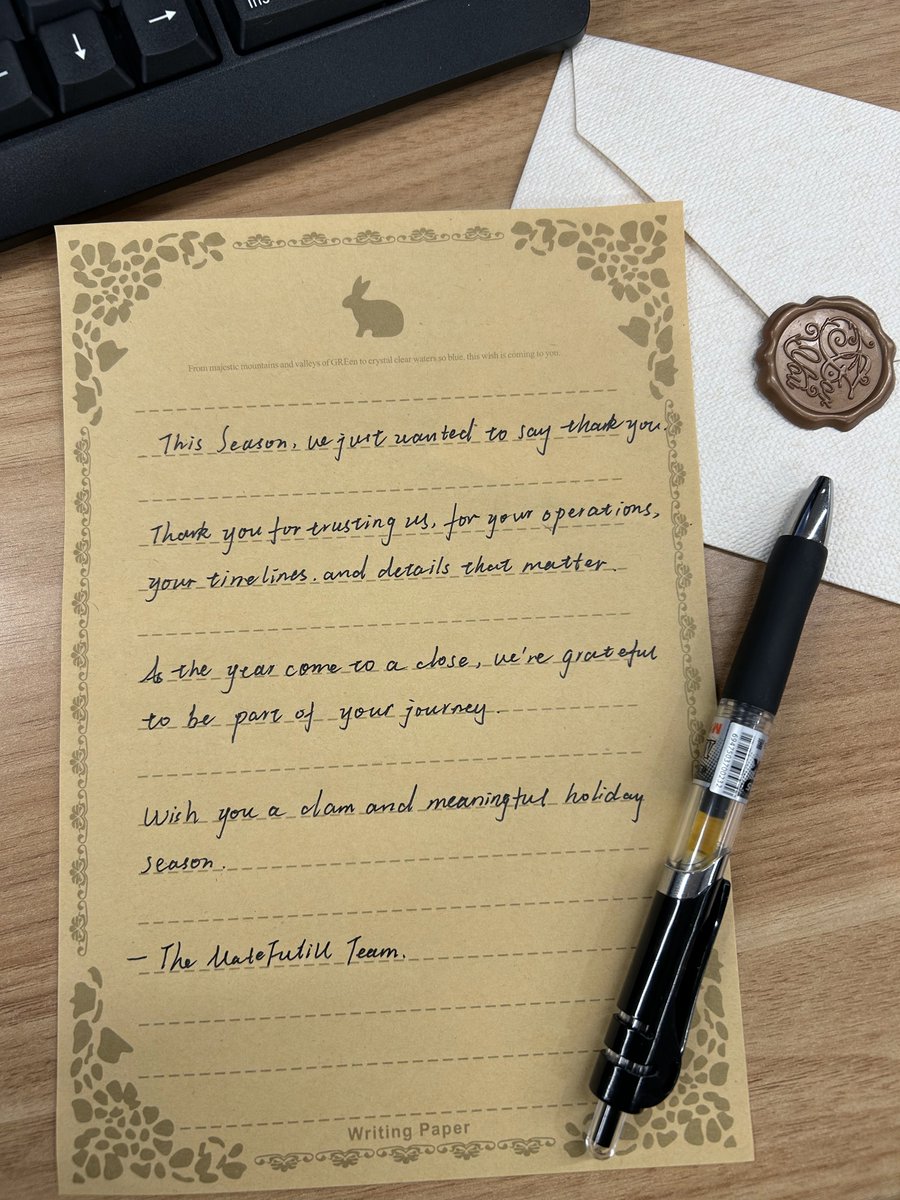 Ins
From majestic mountains and valleys of GREen to crystal clear waters so blue, this wish is coming to you.
This Season, we just wanted to say thank you.
Thank you for trusting us, for your operations,
your timelines. and details that matter.
As the year come to a close, we're grateful
to be part of your journey.
Wish you a clam and meaningful holiday
season.
- The MateFulfill Team.
Writing Paper
6947503700212